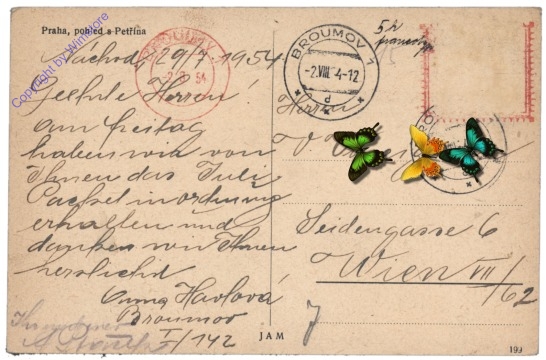 Praha, pohled s Petřína
Copyright by Winstore
Náchod 29/7. 1954
Geehrte Herren!
Am Freitag
haben wir von
Ihnen das Juli
Packet in ordnung
erhalten und
danken wir Ihnen
herzlichst
Anna Havlová
Broumov
I/142
BROUMOV 1
-2.VIII.54-12
d
BROUMOV
54
5h
Herren
V.
Seidengasse 6
Wien VII
/62
J
JAM
199